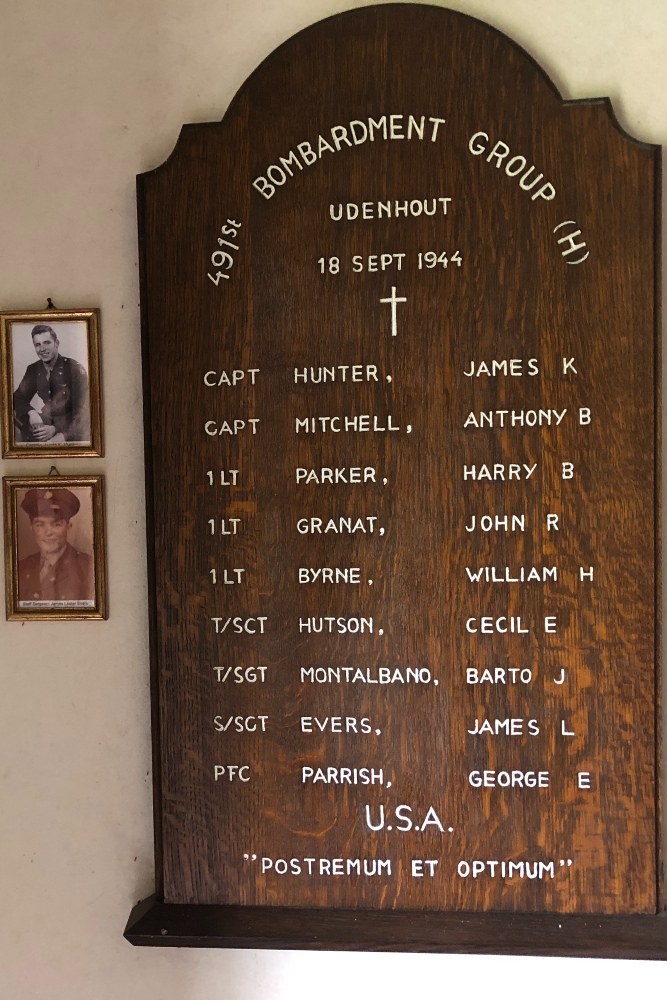 491St BOMBARDMENT GROUP (H)
UDENHOUT
18 SEPT 1944
CAPT HUNTER, JAMES K
CAPT MITCHELL, ANTHONY B
1 LT PARKER, HARRY B
1 LT GRANAT, JOHN R
1 LT BYRNE, WILLIAM H
T/SCT HUTSON, CECIL E
T/SGT MONTALBANO, BARTO J
S/SCT EVERS, JAMES L
PFC PARRISH, GEORGE E
U.S.A.
"POSTREMUM ET OPTIMUM"
Staff Sergeant James